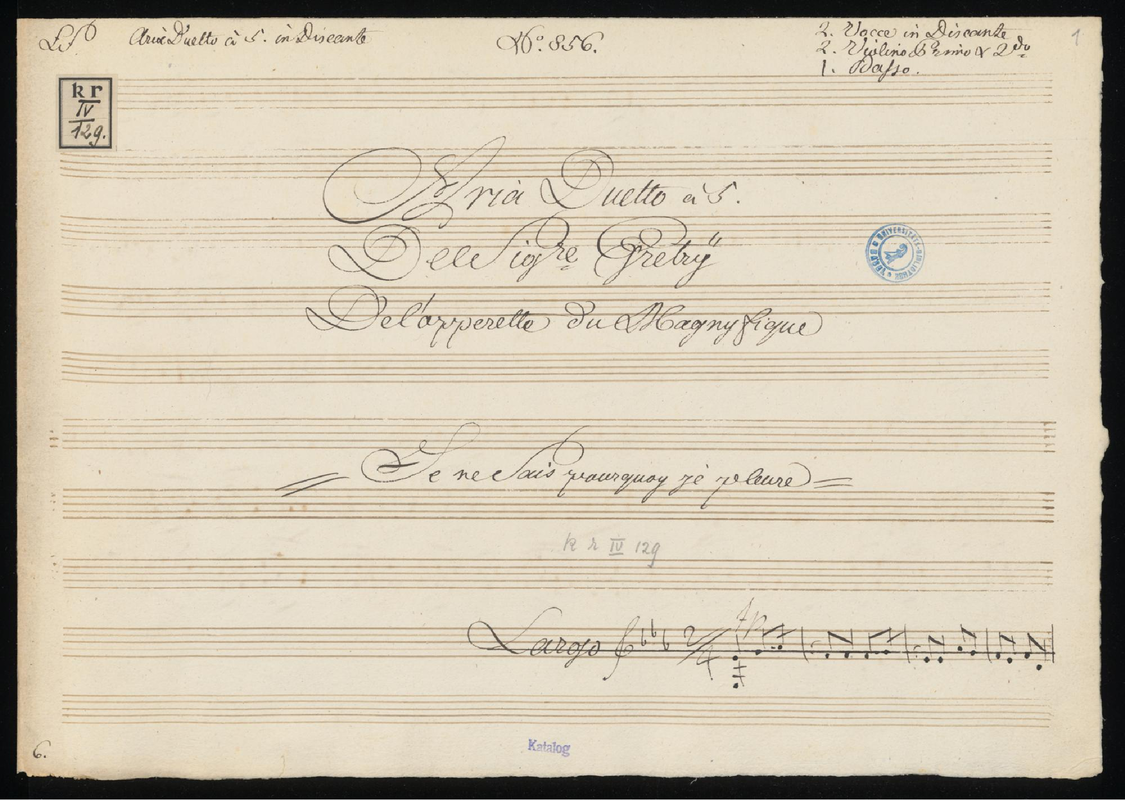 Aria Duetto à 5. in Discante
No. 856.
2. Vocce in Discante
2. Violino Primo & 2do
1. Basso.
1
k r
IV
129.
Aria Duetto à 5.
Del Sigre Gretrÿ
De l'opperetto du Magnyfique
Je ne Sais pourquoy jè pleure
k r IV 129
Largo 2/4
Katalog
6.